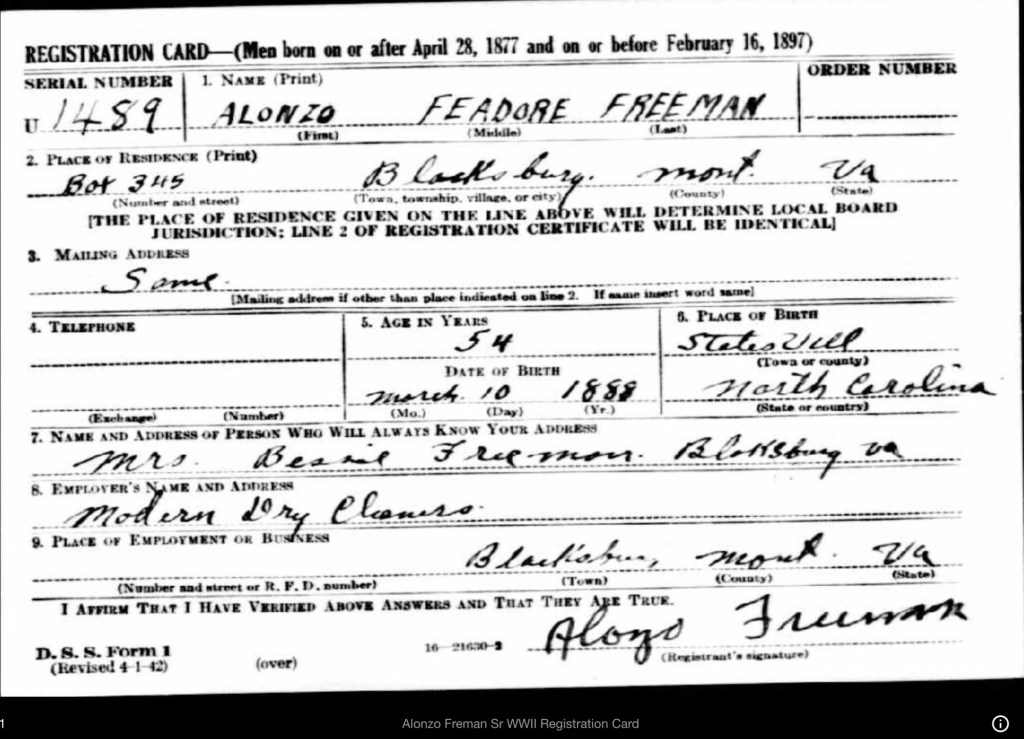 REGISTRATION CARD—(Men born on or after April 28, 1877 and on or before February 16, 1897)
SERIAL NUMBER 1. NAME (Print) ORDER NUMBER
U 1489 ALONZO FEADORE FREEMAN
(First) (Middle) (Last)
2. PLACE OF RESIDENCE (Print)
Box 345 Blacksburg. mont. Va
(Number and street) (Town, township, village, or city) (County) (State)
[THE PLACE OF RESIDENCE GIVEN ON THE LINE ABOVE WILL DETERMINE LOCAL BOARD
JURISDICTION; LINE 2 OF REGISTRATION CERTIFICATE WILL BE IDENTICAL]
3. MAILING ADDRESS
Same.
[Mailing address if other than place indicated on line 2. If same insert word same]
4. TELEPHONE 5. AGE IN YEARS 6. PLACE OF BIRTH
54 StatesVill
(Town or county)
DATE OF BIRTH
March. 10 1888 North Carolina
(Exchange) (Number) (Mo.) (Day) (Yr.) (State or country)
7. NAME AND ADDRESS OF PERSON WHO WILL ALWAYS KNOW YOUR ADDRESS
Mrs. Bessie Freeman. Blaksburg va
8. EMPLOYER'S NAME AND ADDRESS
Modern Dry Cleaners.
9. PLACE OF EMPLOYMENT OR BUSINESS
Blacksburg, Mont. Va
(Number and street or R. F. D. number) (Town) (County) (State)
I AFFIRM THAT I HAVE VERIFIED ABOVE ANSWERS AND THAT THEY ARE TRUE.
Alonzo Freeman
D. S. S. Form 1
(Revised 4-1-42) (over) 16—21630-2 (Registrant's signature)
1 Alonzo Freman Sr WWII Registration Card